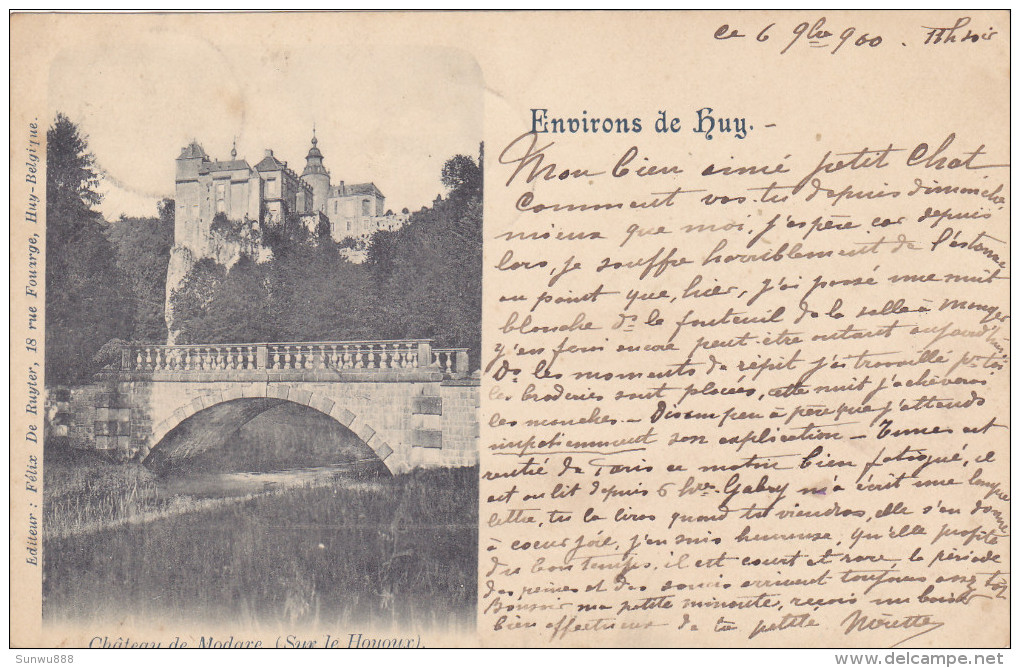 ce 6 9bre 900. 11h soir
Environs de Huy. -
Mon bien aimé petit Chat
Comment vas-tu depuis dimanche
mieux que moi, j'espère car depuis
lors, je souffre horriblement de l'estomac
au point que, hier, j'ai passé une nuit
blanche ds le fauteuil de la salle à manger
j'en ferai encore peut-être autant aujourd'hui
Ds les moments de répit j'ai travaillé pr toi
les broderies sont placées, cette nuit j'achèverai
les manches. - Dis un peu à père que j'attends
impatiemment son explication - est
rentré de Paris ce matin bien fatigué, il
est au lit depuis 6 hres. Gaby m'a écrit une longue
lettre, tu la liras quand tu viendras, elle s'en donne
à coeur joie, j'en suis heureuse, qu'elle profite
du bon temps, il est court et rare, la période
des peines et des soucis arrivent toujours assez tôt
Bonsoir ma petite minoute, reçois un baiser
bien affectueux de ta petite Ninette
Editeur : Félix De Ruyter, 18 rue Fouarge, Huy-Belgique.
Château de Modave (Sur le Hoyoux).
Sunwu888
delcampe.net